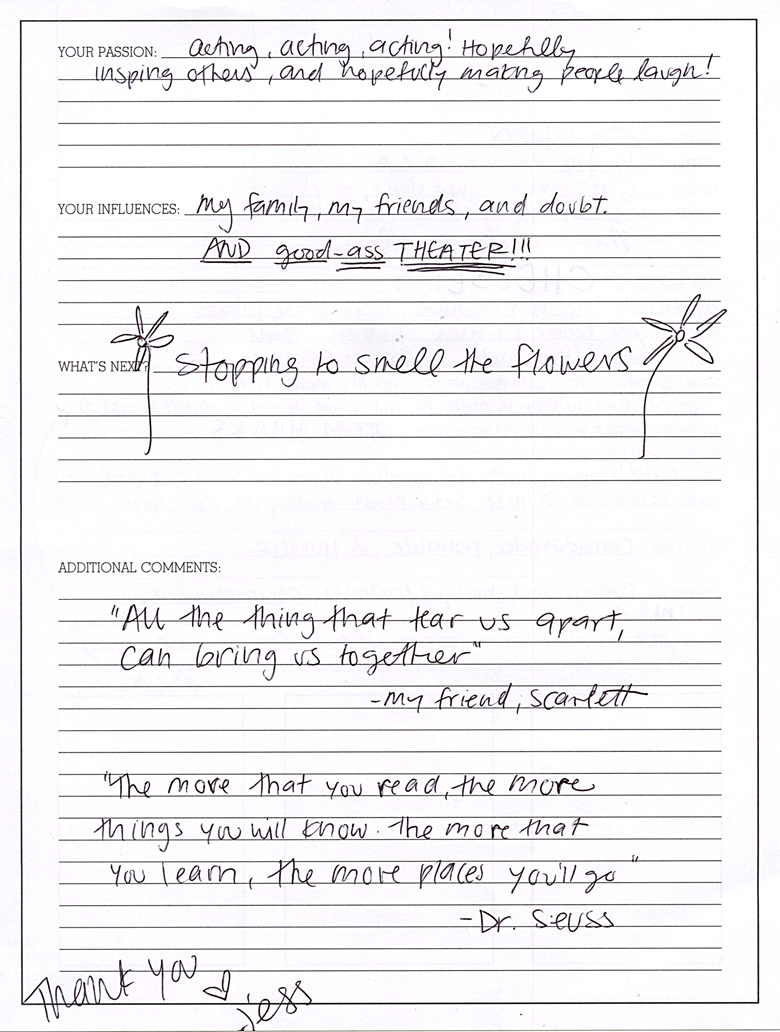 YOUR PASSION: acting, acting, acting! Hopefully
insping others, and hopefully making people laugh!
YOUR INFLUENCES: my family, my friends, and doubt.
AND good-ass THEATER!!!
WHAT'S NEXT? Stopping to smell the flowers
ADDITIONAL COMMENTS:
"All the thing that tear us apart,
can bring us together"
-my friend, Scarlett
"The more that you read, the more
things you will know. The more that
you learn, the more places you'll go"
-Dr. Seuss
Thank you
Jess